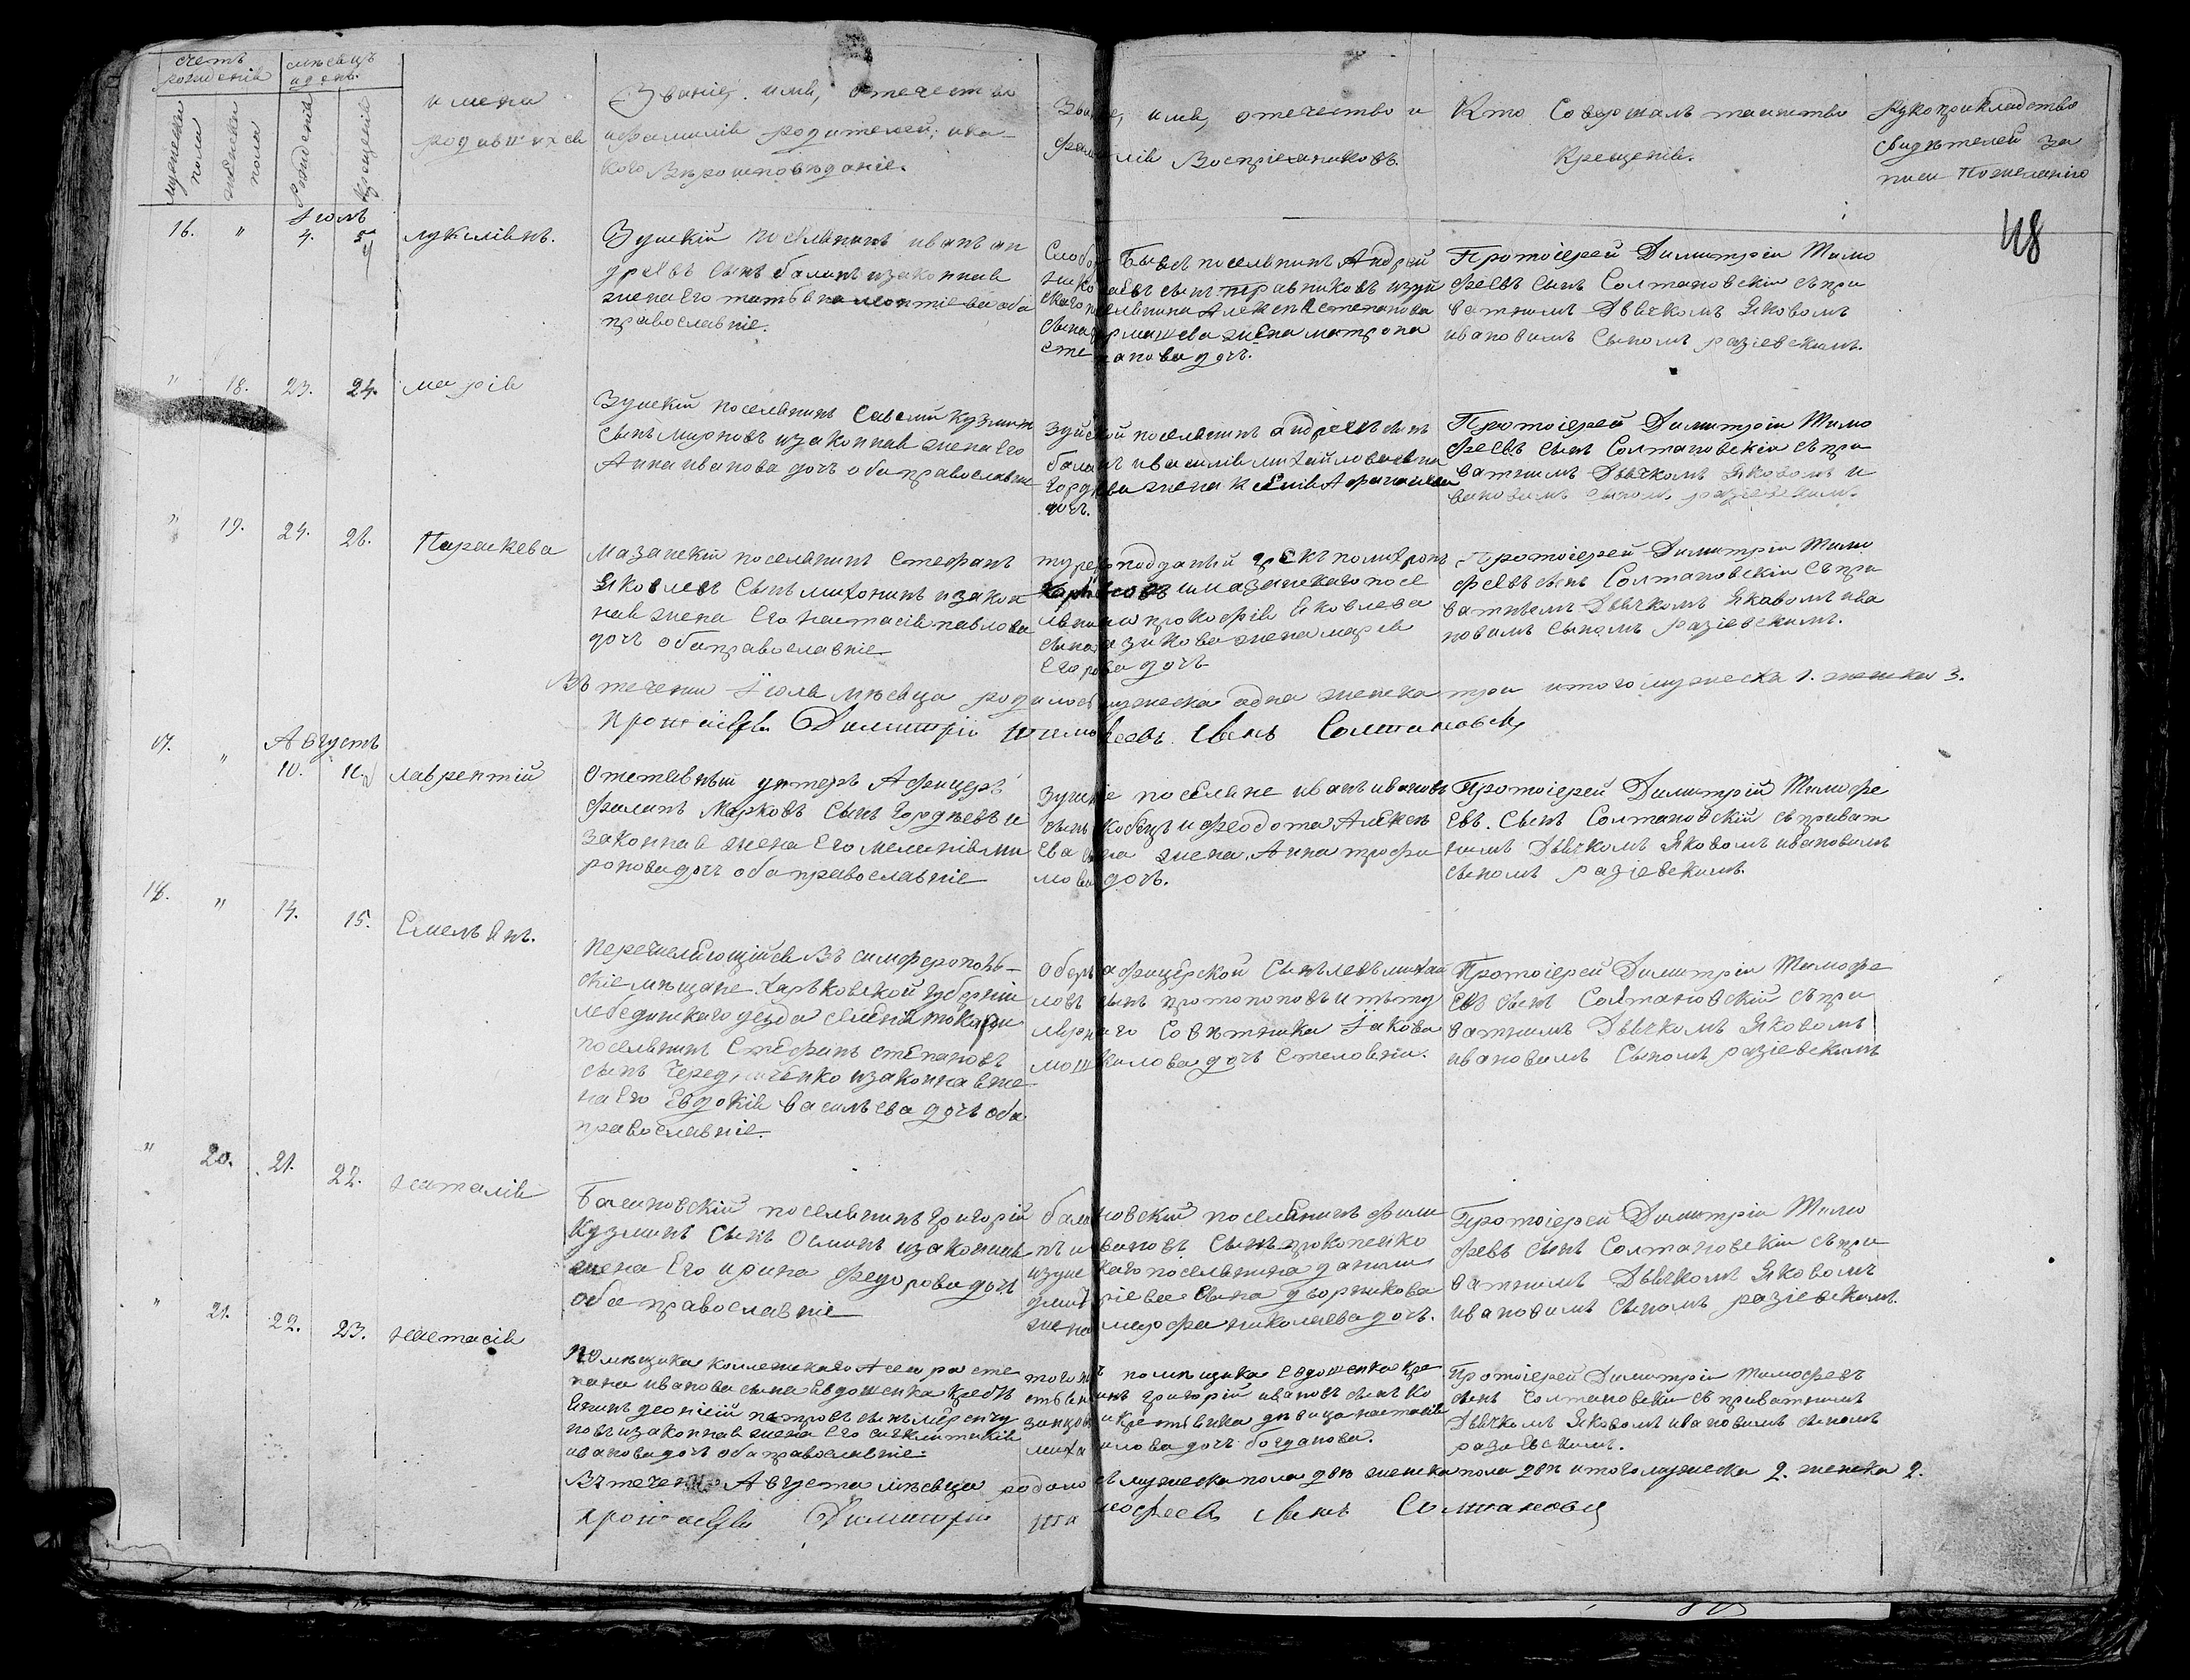 счетъ рожденія
мѣсяцъ и день
мужеска пола
женска пола
Рожденія
Крещенія
имена
родившихся
Званіе, имя, отечество
и фамилія родителей, и ка-
кого Вѣроисповѣданіе.
Званіе, имя, отечество и
фамилія Воспріемниковъ.
Кто Совершалъ таинство
Крещенія.
Рукоприкладство
Свидѣтелей за
писи По желанію
48
Іюль
16. " 4. 5 лукиліянъ.
Зуйскій поселянинъ иванъ ан
дреевъ сынъ баланъ и законная
жена Его татьяна леонтиева оба
православніе.
поселянинъ Андрей
сынъ правниковъ и зуй
скаго поселянина Алексея степанова
сына жена матрона
степанова дочь.
Протоіерей Димитрій Тимо
феевъ сынъ Солтановскій съ при
ватнимъ Дьячкомъ Яковомъ
ивановимъ Сыномъ разіевскимъ.
" 18. 23. 24. марія
Зуйскій поселянинъ Савелий Кузминъ
Сынъ мирновъ и законная жена Его
Анна иванова дочь оба православніе
Зуйской поселянинъ андреевъ сынъ
баланъ и василія михайлова сына
гордѣева жена ксения Афанасиева
дочь.
Протоіерей Димитрій Тимо
феевъ сынъ Солтановскій съ при
ватнимъ Дьячкомъ Яковомъ и
вановимъ сыномъ разіевскимъ
" 19. 24. 26. Параскева
Мазанскій поселянинъ стефанъ
Яковлевъ Сынъ михонинъ и закон
ная жена Его настасія павлова
дочь оба православніе
турецкоподданый грекъ полихронъ
и мазанскаго посе
лянина прокофія Яковлева
сына азикова жена марія
Егорова дочь
Протоіерей Димитрій Тимо
феевъ сынъ Солтановскій съ при
ватнимъ Дьячкомъ Яковомъ ива
новимъ Сыномъ разіевскимъ.
Въ течении Іюля мѣсяца родилось мужеска одна женска три итого мужеска 1. женска 3.
протоіерей Димитрій тимофеевъ Сынъ Солтановскій
Августъ
17. " 10. 11. лаврентій
Отставный унтеръ Афицеръ
филипъ Марковъ Сынъ гордѣевъ и
законная жена Его меланія ми
ронова дочь оба православніе
Зуйскіе поселяне иванъ ивановъ
сынъ кобецъ и феодота Алексе
ева сына жена Анна трофи
мова дочь.
Протоіерей Димитрій Тимофе
евъ Сынъ Солтановскій съ приват
нимъ Дьячкомъ Яковомъ ивановимъ
сыномъ разіевскимъ.
18. " 14. 15. Емельянъ.
Перечисляющійся Въ симферополь-
скіе мещане Харьковской губерніи
лебединскаго уезда селения токари
поселянинъ Стефанъ степановъ
сынъ Чередниченко и законная же
на Его Евдокія васильева дочь оба
православніе.
Оберъ афицерской сынъ левъ михай
ловъ сынъ протопоповъ и титу
лярнаго Совѣтника Іакова
мошкалова дочь Стеловѣя.
Протоіерей Димитрій Тимофе
евъ сынъ Солтановскій съ при
ватнимъ Дьячкомъ Яковомъ
ивановимъ Сыномъ разіевскимъ
" 20. 21. 22. наталія
Балановскій поселянинъ григорій
Кузминъ Сынъ Осминъ и законная
жена Его ирина Федорова дочь
оба православніе
балановскій поселянинъ фили
пъ ивановъ сынъ прокопенко
и зуйскаго поселянина данила
дмитріева Сына дворникова
жена марфа николаева дочь.
Протоіерей Димитрій Тимо
феевъ сынъ Солтановскій съ при
ватнимъ Дьячкомъ Яковомъ
ивановимъ сыномъ разіевскимъ.
" 21. 22. 23. настасія
Помѣщика коллежскаго Асесора сте
пана иванова сына Евдошенка крестья
янинъ деонісий петровъ сынъ
новъ и законная жена Его синклитикія
иванова дочь оба православніе.
того жъ помѣщика Евдошенка кре
стьянинъ григорій ивановъ сынъ ко
занцовъ и крестьянка дѣвица настасія
михайлова дочь богданова.
Протоіерей Димитрій тимофеевъ
сынъ Солтановскій съ приватнимъ
Дьячкомъ Яковомъ ивановимъ сыномъ
разіевскимъ.
Въ течении Августа мѣсяца родилось мужеска пола две женска пола две итого мужеска 2. женска 2.
протоіерей Димитрій тимофеевъ Сынъ Солтановскій